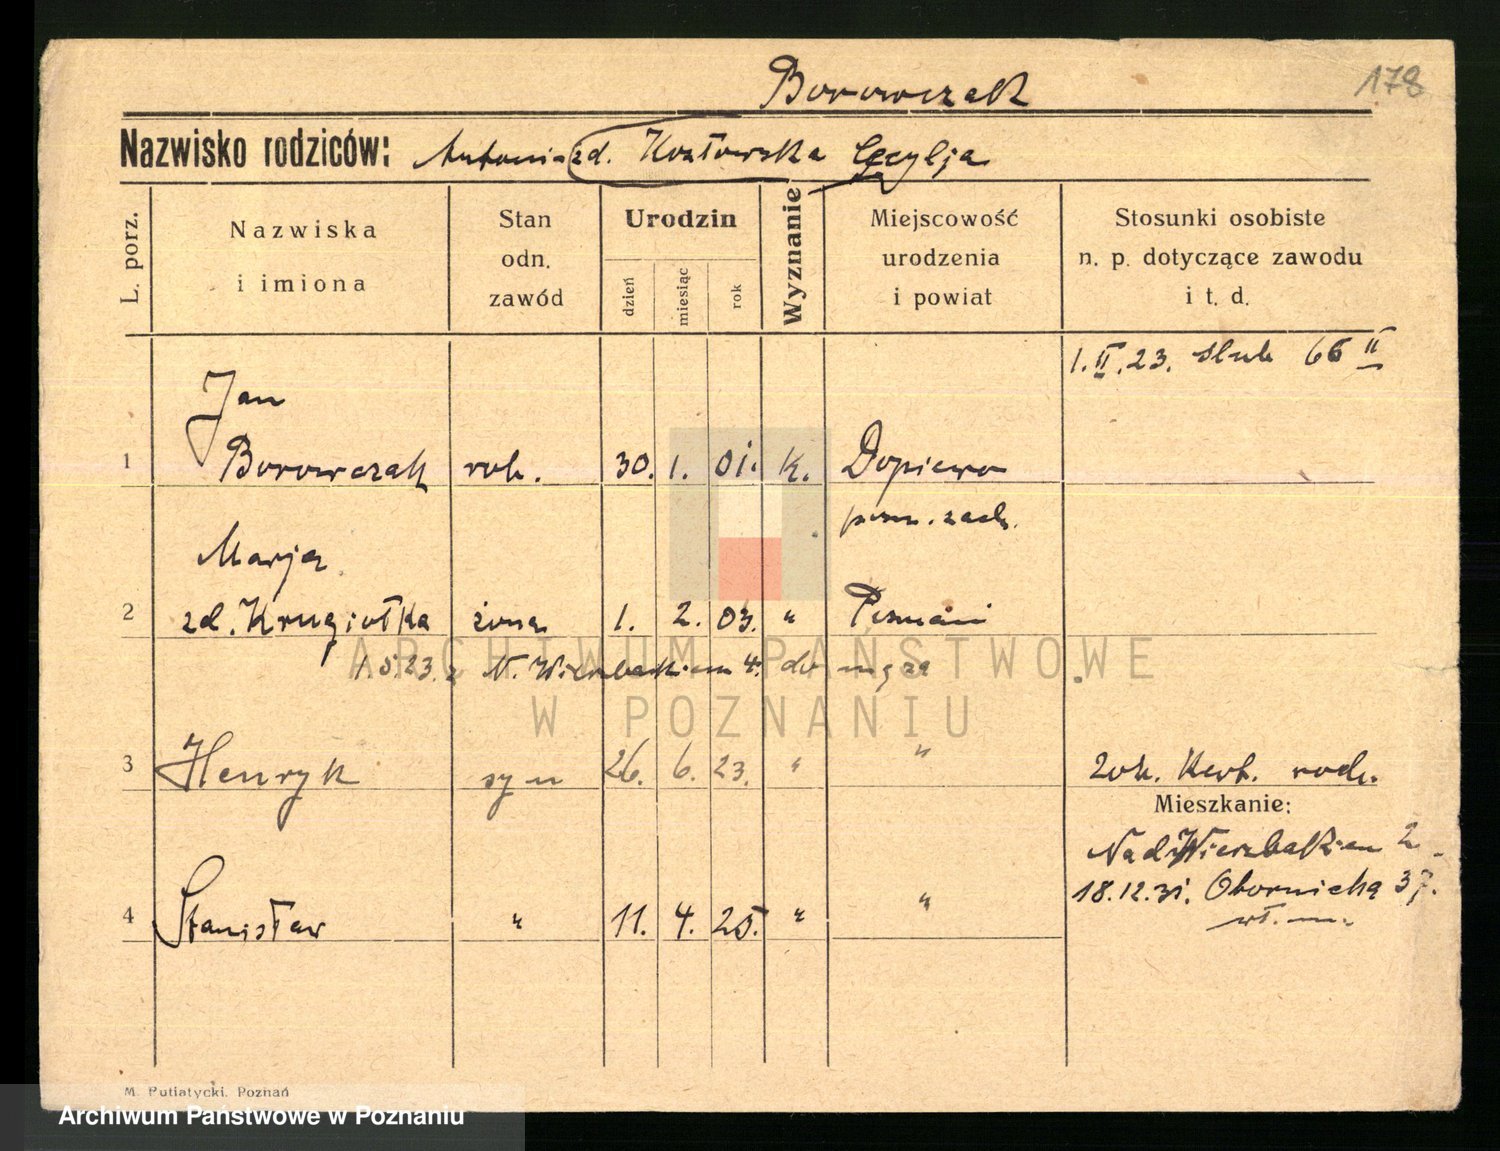 Borowczak
178
Nazwisko rodziców: Antoni zd. Kozłowska Cecylja
L. porz.
Nazwiska
i imiona
Stan
odn.
zawód
Urodzin
dzień
miesiąc
rok
Wyznanie
Miejscowość
urodzenia
i powiat
Stosunki osobiste
n. p. dotyczące zawodu
i t. d.
1. II. 23. slub 66 II
Jan
1 Borowczak rob. 30. 1. 01. k. Dopiewo
pozn. zach.
Marja
2 zd. Krugiołka żona 1. 2. 03. " Poznań
1.5.23. z N. Wierzbakiem 4. do męża
3 Henryk syn 26. 6. 23. " " rod.
Mieszkanie:
Nad Wierzbakiem 2
18.12.31. Obornicka 37.
4 Stanisław " 11. 4. 25. " "
ARCHIWUM PAŃSTWOWE
W POZNANIU
M. Putiatycki. Poznań
Archiwum Państwowe w Poznaniu